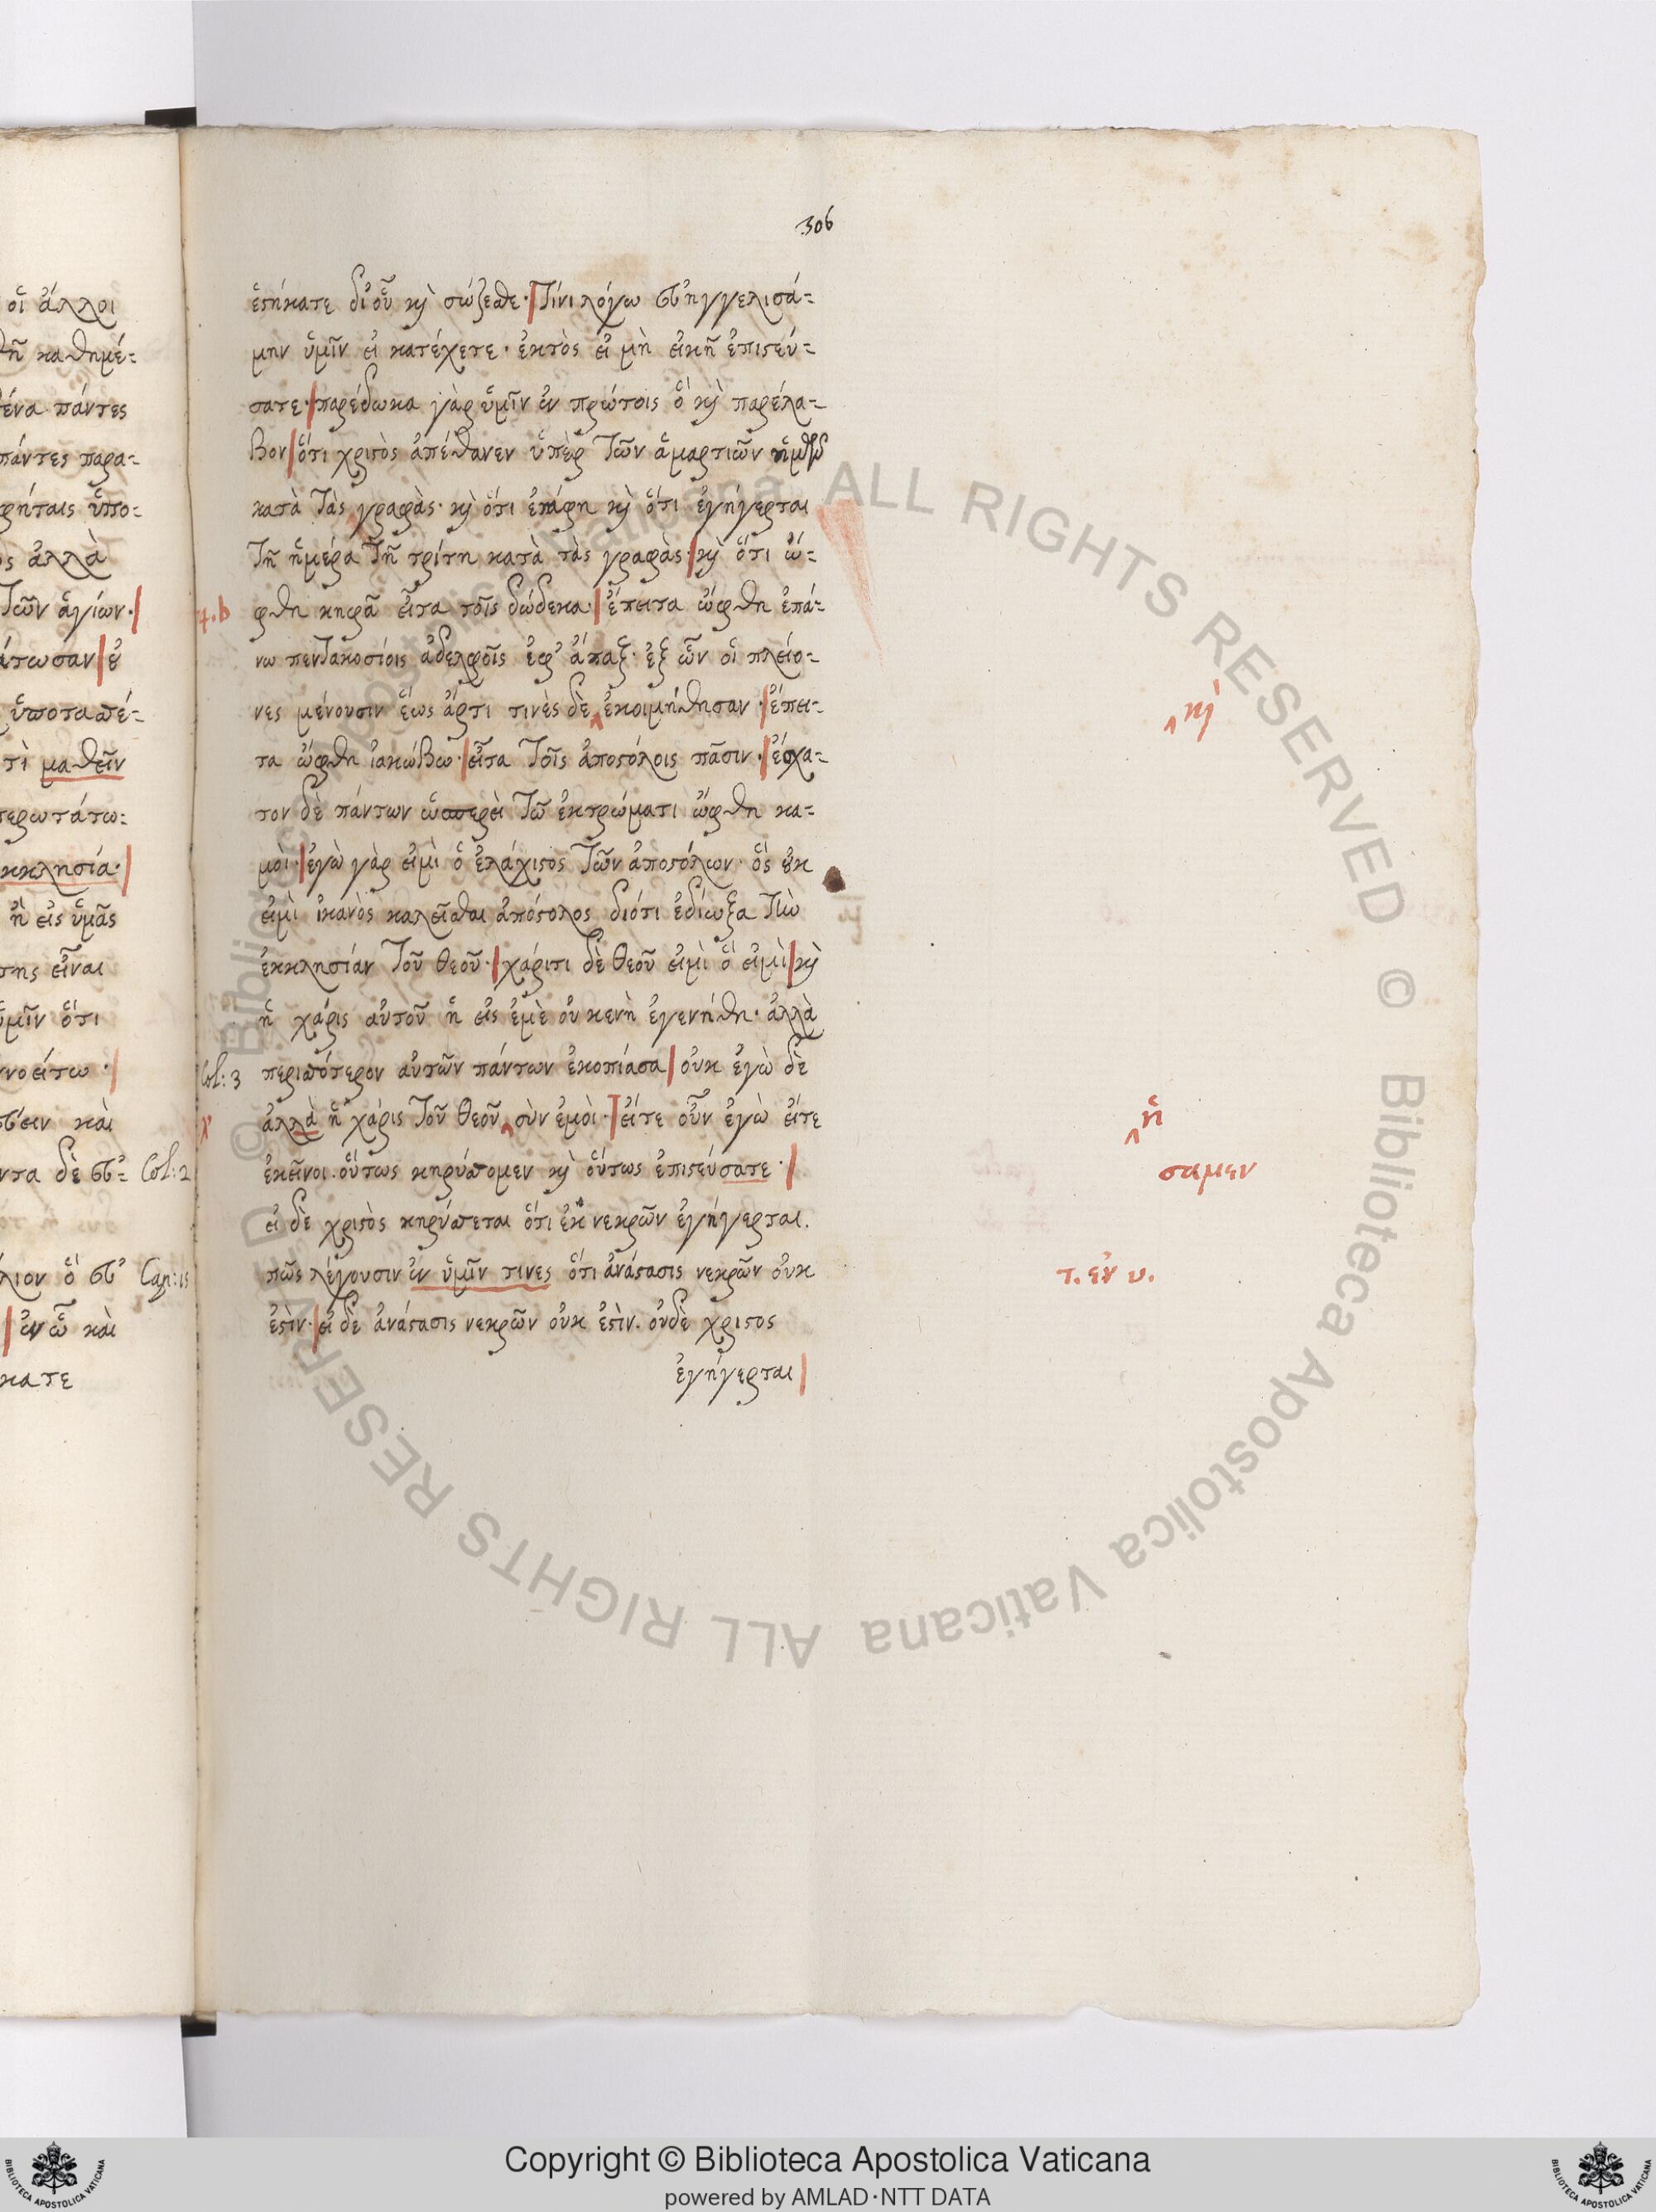 οἱ ἄλλοι
καθημέ-
πάντες
πάντες παρα-
ὑπο-
ἀλλὰ
τῶν ἁγίων·
τὶ μαθεῖν
ἢ εἰς ὑμᾶς
εἶναι
ὅτι
Col: 2
Cap: 15
ἐν ᾧ καὶ
306
ἑστήκατε δι' οὗ καὶ σώζεσθε· τίνι λόγω εὐηγγελισά-
μην ὑμῖν εἰ κατέχετε· ἐκτὸς εἰ μὴ εἰκῆ ἐπιστεύ-
σατε· παρέδωκα γὰρ ὑμῖν ἐν πρώτοις ὃ καὶ παρέλα-
βον ὅτι χριστὸς ἀπέθανεν ὑπὲρ τῶν ἁμαρτιῶν ἡμῶν
κατὰ τὰς γραφὰς· καὶ ὅτι ἐτάφη καὶ ὅτι ἐγήγερται
τῆ ἡμέρα τῆ τρίτη κατὰ τὰς γραφὰς· καὶ ὅτι ὤ-
φθη κηφᾶ εἶτα τοῖς δώδεκα· ἔπειτα ὤφθη ἐπά-
νω πεντακοσίοις ἀδελφοῖς ἐφ' ἅπαξ· ἐξ ὧν οἱ πλείο-
νες μένουσιν ἕως ἄρτι τινὲς δὲ ‸ ἐκοιμήθησαν· ἔπει-
‸ καὶ
τα ὤφθη ἰακώβω· εἶτα τοῖς ἀποστόλοις πᾶσιν· ἔσχα-
τον δὲ πάντων ὡσπερεὶ τῶ ἐκτρώματι ὤφθη κα-
μοὶ· ἐγὼ γὰρ εἰμὶ ὁ ἐλάχιστος τῶν ἀποστόλων· ὃς οὐκ
εἰμὶ ἱκανὸς καλεῖσθαι ἀπόστολος διότι ἐδίωξα τὴν
ἐκκλησίαν τοῦ θεοῦ· χάριτι δὲ θεοῦ εἰμὶ ὅ εἰμὶ καὶ
ἡ χάρις αὐτοῦ ἡ εἰς ἐμὲ οὐ κενὴ ἐγενήθη· ἀλλὰ
Col: 3 περισσότερον αὐτῶν πάντων ἐκοπίασα οὐκ ἐγὼ δὲ
ἀλλὰ ἡ χάρις τοῦ θεοῦ ‸ σὺν ἐμοὶ· εἴτε οὖν ἐγὼ εἴτε
‸ ἡ
ἐκεῖνοι. οὕτως κηρύσσομεν καὶ οὕτως ἐπιστεύσατε·
σαμεν
εἰ δὲ χριστὸς κηρύσσεται ὅτι ἐκ νεκρῶν ἐγήγερται.
πῶς λέγουσιν ἐν ὑμῖν τινες ὅτι ἀνάστασις νεκρῶν οὐκ
τ. ἐν υ.
ἐστὶν· εἰ δὲ ἀνάστασις νεκρῶν οὐκ ἐστὶν. οὐδὲ χριστος
ἐγήγερται
© Biblioteca Apostolica Vaticana ALL RIGHTS RESERVED © Biblioteca Apostolica Vaticana ALL RIGHTS RESERVED
Copyright © Biblioteca Apostolica Vaticana
powered by AMLAD·NTT DATA
BIBLIOTECA APOSTOLICA VATICANA
BIBLIOTECA APOSTOLICA VATICANA